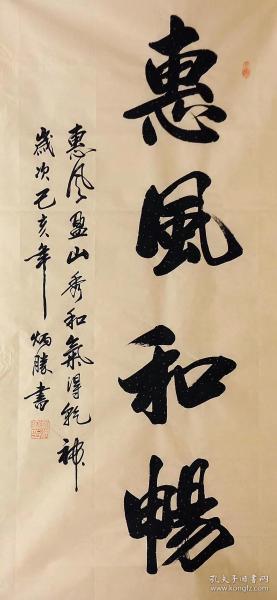 惠風和暢
惠风盈山秀和氣得乾神
歲次己亥年炳勝書
孔夫子旧书网